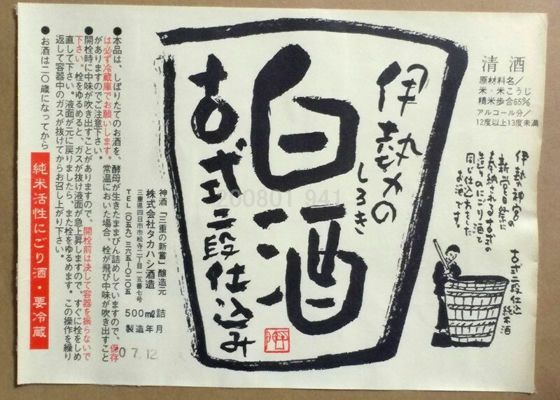 清酒
原材料名／
米・米こうじ
精米歩合65%
アルコール分／
12度以上13度未満
伊勢の神宮の
新嘗祭に
古式二段仕込
純米酒
伊勢の
しろき
白酒
古式二段仕込み
神酒「三重の新嘗」醸造元
株式会社タカハシ酒造
三重県四日市市松寺二丁目一五番七号
TEL(〇五九)三六五-〇二〇五
500mℓ詰
製造年月
0 7.12
200801 941
●本品は、しぼりたてのお酒を、酵母が生きたままびん詰めしていますので、保存
は必ず冷蔵庫でお願いします。常温においた場合、栓が飛び中味が吹き出すこと
がありますのでご注意下さい。
●開栓時に中味が吹き出すことがありますので、開栓前は決して容器を振らないで
下さい。栓をゆるめると、ガスが抜け液面が急上昇しますので、すぐに栓をしめ
直して下さい。液面が元に戻りましたら、また栓をゆるめます。この操作を繰り
返して容器中のガスが抜けてからお召し上がり下さい。
●お酒は二〇歳になってから
純米活性にごり酒・要冷蔵